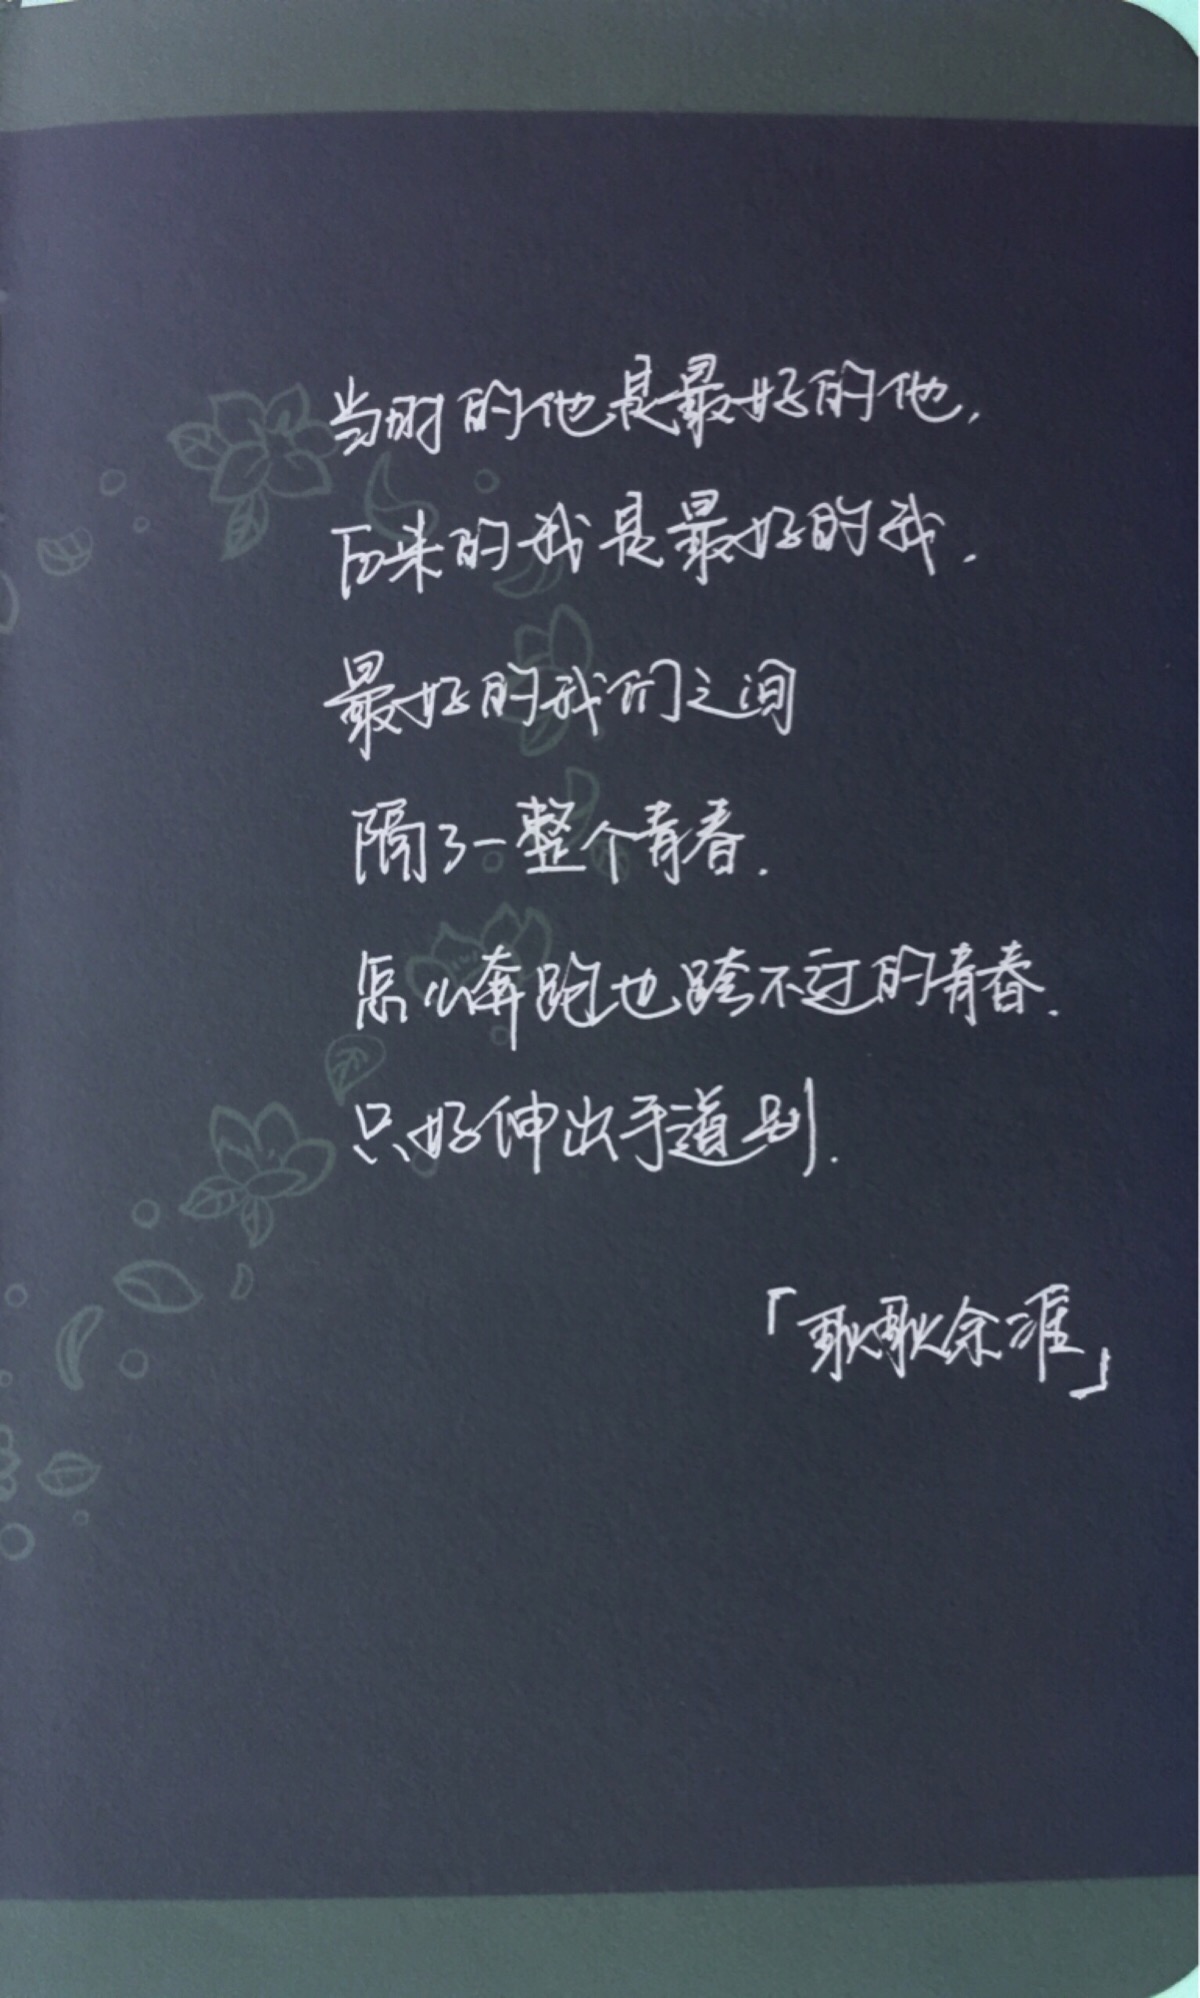 当时的他是最好的他,
后来的我是最好的我.
最好的我们之间
隔了一整个青春.
怎么奔跑也跨不过的青春.
只好伸出手道别.
「耿耿余淮」